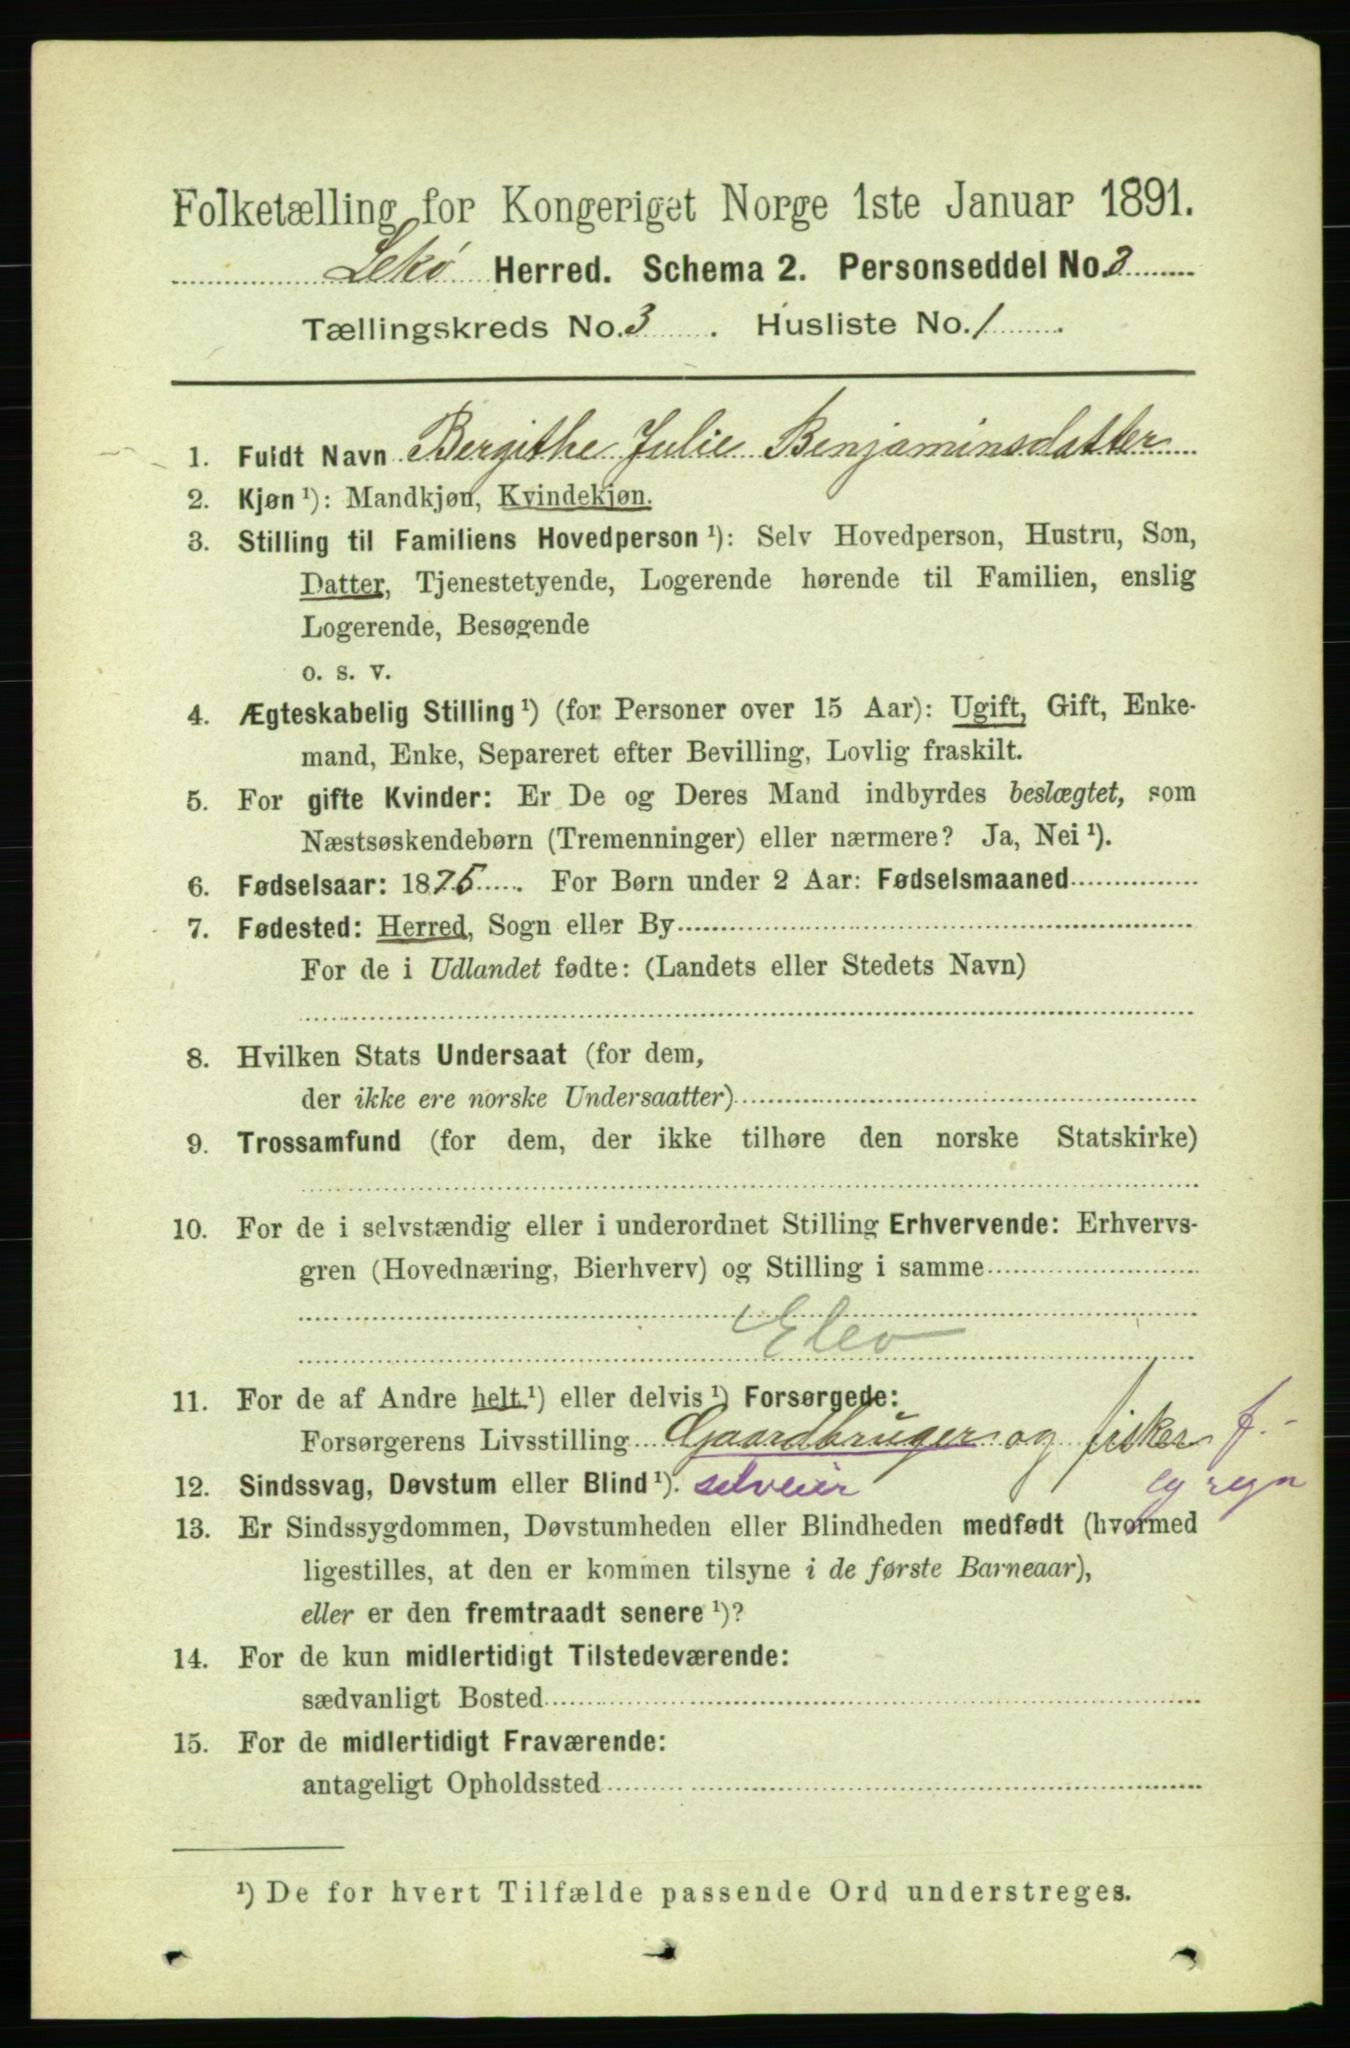 Folketælling for Kongeriget Norge 1ste Januar 1891.
Lekø Herred. Schema 2. Personseddel No. 3
Tællingskreds No. 3. Husliste No. 1.
1. Fuldt Navn Bergithe Julie Benjaminsdatter
2. Kjøn¹): Mandkjøn, Kvindekjøn.
3. Stilling til Familiens Hovedperson¹): Selv Hovedperson, Hustru, Søn,
Datter, Tjenestetyende, Logerende hørende til Familien, enslig
Logerende, Besøgende
o. s. v.
4. Ægteskabelig Stilling¹) (for Personer over 15 Aar): Ugift, Gift, Enke-
mand, Enke, Separeret efter Bevilling, Lovlig fraskilt.
5. For gifte Kvinder: Er De og Deres Mand indbyrdes beslægtet, som
Næstsøskendebørn (Tremenninger) eller nærmere? Ja, Nei¹).
6. Fødselsaar: 1875. For Børn under 2 Aar: Fødselsmaaned
7. Fødested: Herred, Sogn eller By
For de i Udlandet fødte: (Landets eller Stedets Navn)
8. Hvilken Stats Undersaat (for dem,
der ikke ere norske Undersaatter)
9. Trossamfund (for dem, der ikke tilhøre den norske Statskirke)
10. For de i selvstændig eller i underordnet Stilling Erhvervende: Erhvervs-
gren (Hovednæring, Bierhverv) og Stilling i samme
Elev
11. For de af Andre helt¹) eller delvis¹) Forsørgede:
Forsørgerens Livsstilling Gaardbruger og fisker f.
12. Sindssvag, Døvstum eller Blind¹). selveier
13. Er Sindssygdommen, Døvstumheden eller Blindheden medfødt (hvormed
ligestilles, at den er kommen tilsyne i de første Barneaar),
eller er den fremtraadt senere¹)?
14. For de kun midlertidigt Tilstedeværende:
sædvanligt Bosted
15. For de midlertidigt Fraværende:
antageligt Opholdssted
¹) De for hvert Tilfælde passende Ord understreges.